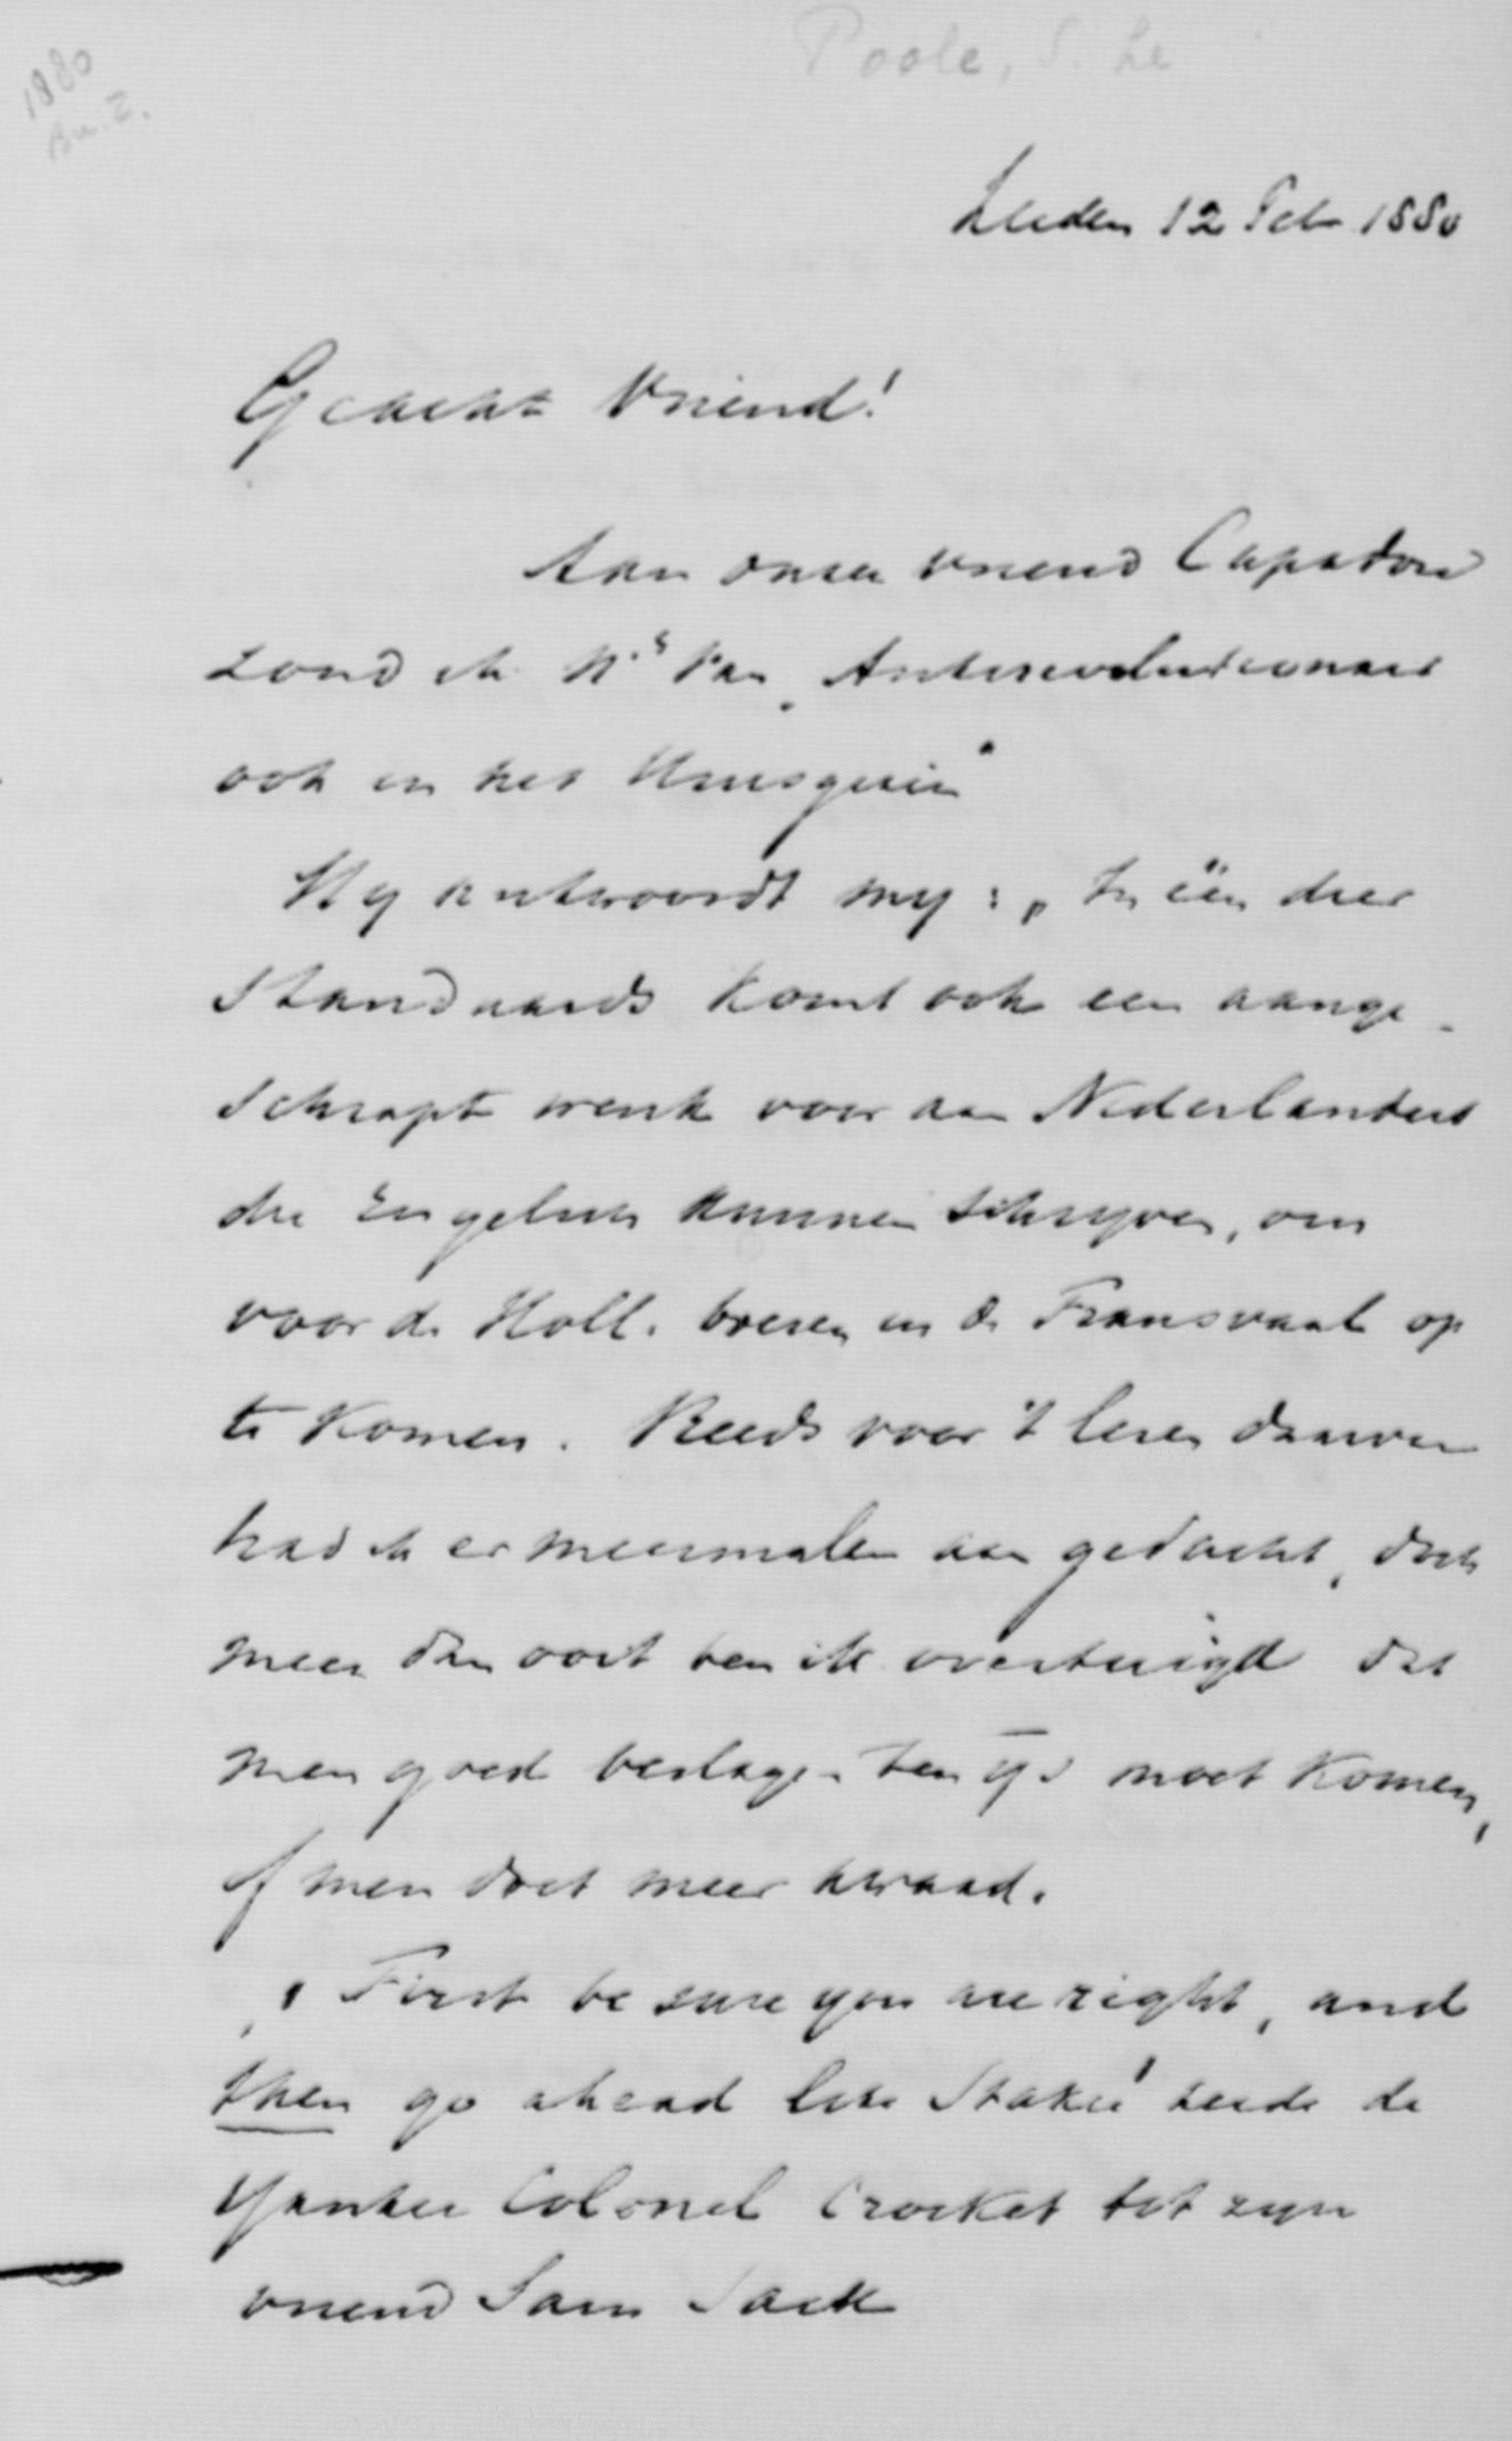 1880
Poole, S. Le
Leiden 12 Feb 1880
Geachte Vriend!
Aan onzen vriend Capadose
zond ik N.s van „Antirevolutionair
ook in het Huisgezin"
Hy antwoordt my: „In één dier
Standaards komt ook een aange-
schrapte wenk voor aan Nederlanders
die Engelsch kunnen schryven, om
voor de Holl. boeren in de Transvaal op
te komen. Reeds voor 't lezen daarvan
had ik er meermalen aan gedacht, doch
meer dan ooit ben ik overtuigd dat
men goed beslagen ten ys moet komen,
of men doet meer kwaad.
„First be sure you are right, and
then go ahead like" zeide de
Yankee Colonel Crocket tot zyn
vriend Sam